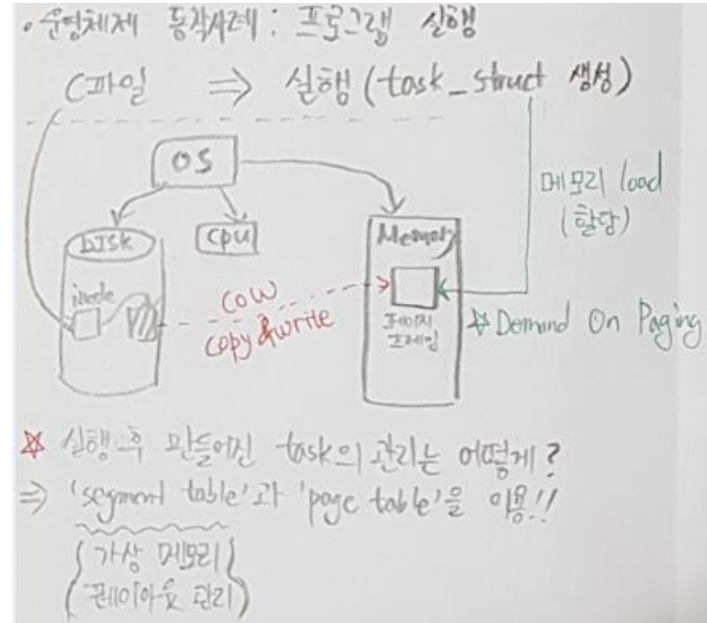 • 운영체제 동작사례 : 프로그램 실행
C파일 ⇒ 실행 (task_struct 생성)
OS
메모리 load
(할당)
DISK
CPU
Memory
inode
COW
copy & write
페이지
프레임
☆ Demand On Paging
☆ 실행 후 만들어진 task의 관리는 어떻게?
⇒ 'segment table'과 'page table'을 이용!!
가상 메모리
레이아웃 관리